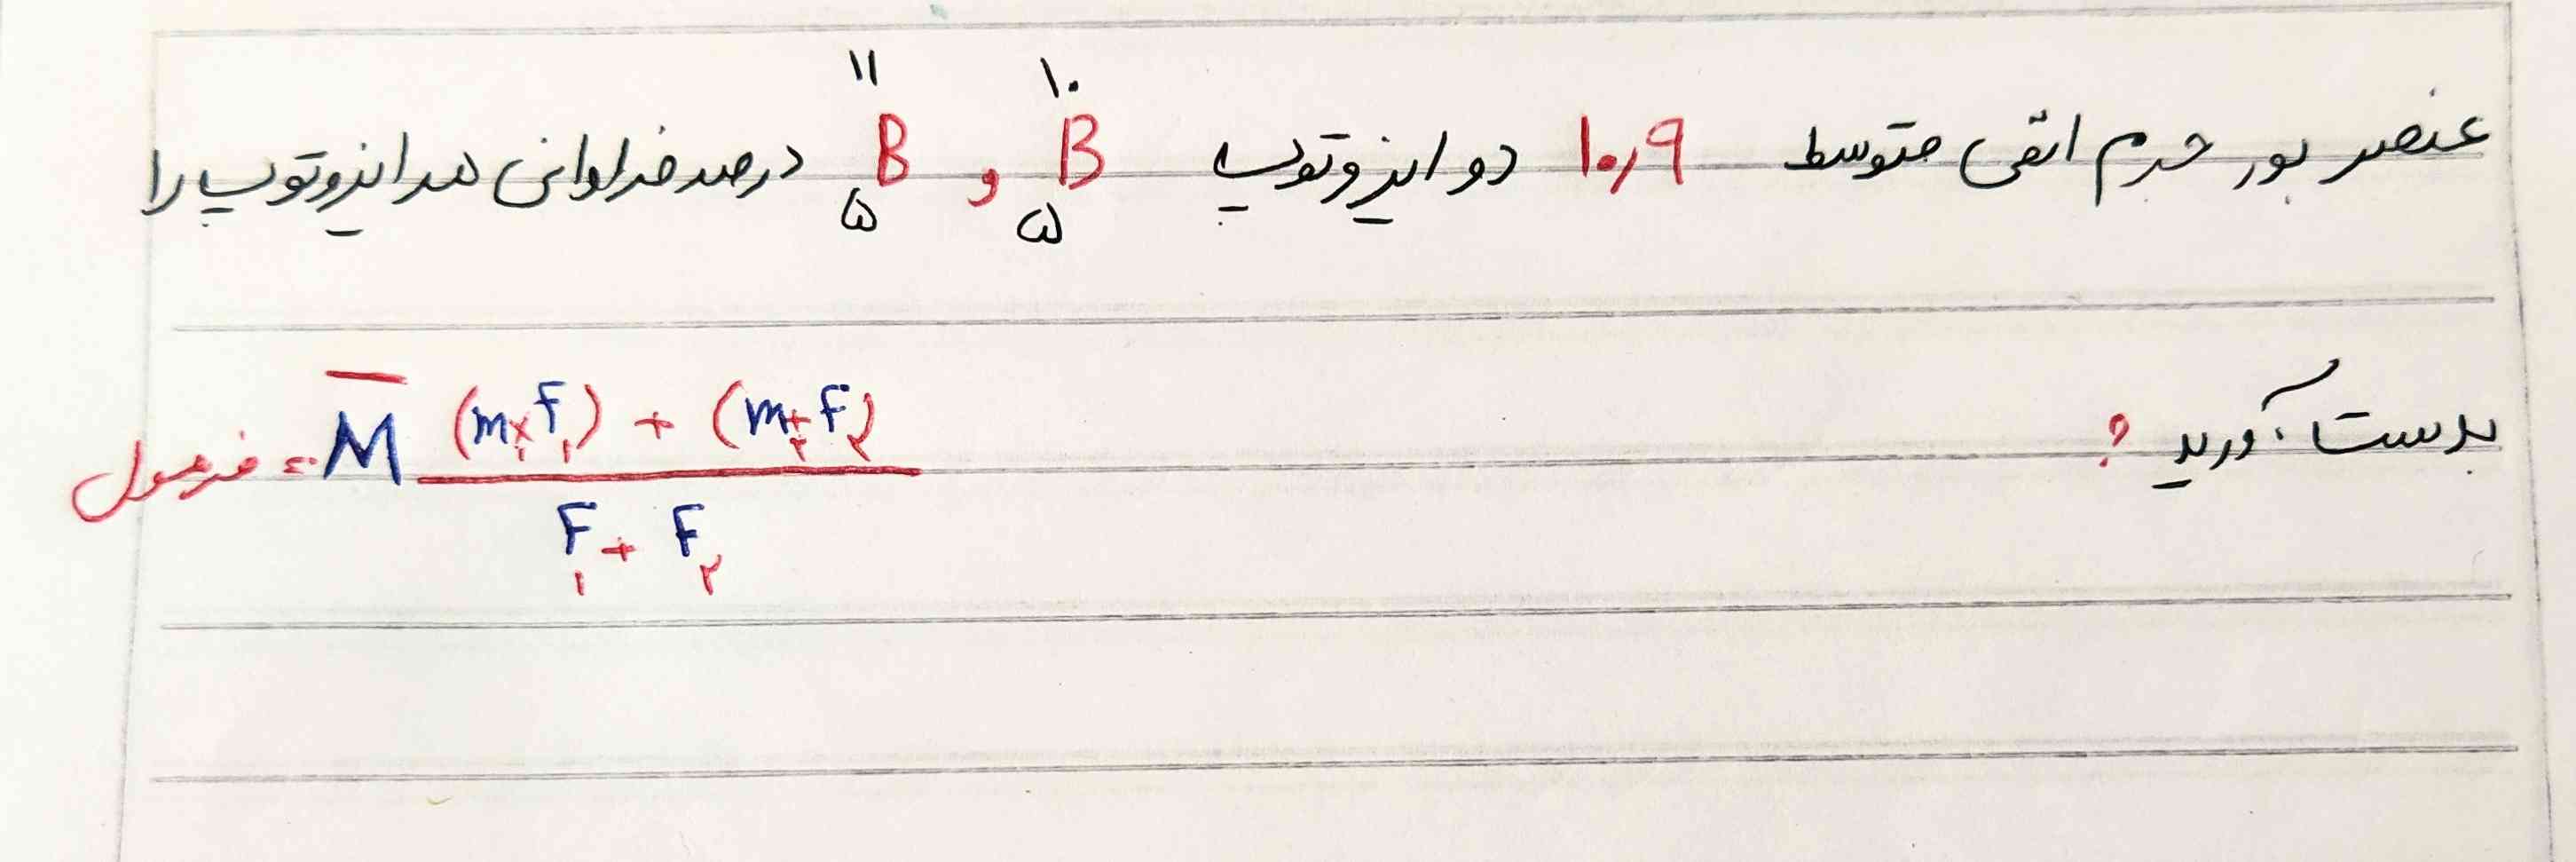 عنصر بور جرم اتمی متوسط ۱۰٫۹ دو ایزوتوپ ¹⁰₅B و ¹¹₅B درصد فراوانی هر ایزوتوپ را
بدست آورید ?
فرمول = M̄ (m₁×F₁) + (m₂+F₂) / F₁ + F₂